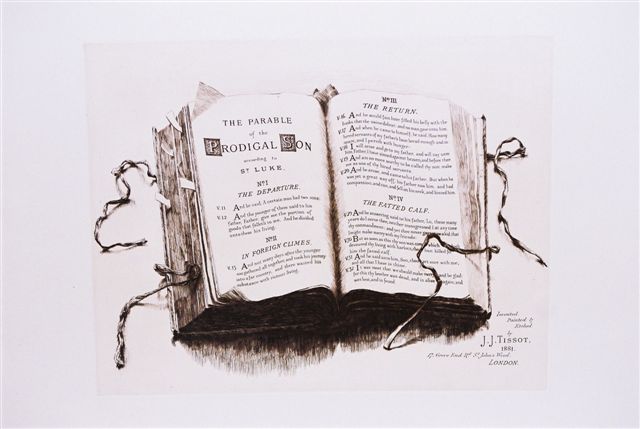 THE PARABLE
of the
PRODIGAL SON
according to
ST LUKE.
No I
THE DEPARTURE.
V. 11 And he said, A certain man had two sons:
V. 12 And the younger of them said to his
father, Father, give me the portion of
goods that falleth to me. And he divided
unto them his living.
No II
IN FOREIGN CLIMES.
V. 13 And not many days after the younger
son gathered all together, and took his journey
into a far country, and there wasted his
substance with riotous living.
No III
THE RETURN.
V. 16 And he would fain have filled his belly with the
husks that the swine did eat: and no man gave unto him.
V. 17 And when he came to himself, he said, How many
hired servants of my father's have bread enough and to
spare, and I perish with hunger.
V. 18 I will arise and go to my father, and will say unto
him, Father, I have sinned against heaven, and before thee
V. 19 And am no more worthy to be called thy son: make
me as one of thy hired servants.
V. 20 And he arose, and came to his father. But when he
was yet a great way off, his father saw him, and had
compassion, and ran, and fell on his neck, and kissed him.
No IV
THE FATTED CALF.
V. 29 And he answering said to his father, Lo, these many
years do I serve thee, neither transgressed I at any time
thy commandment: and yet thou never gavest me a kid that
I might make merry with my friends:
V. 30 But as soon as this thy son was come, which hath
devoured thy living with harlots, thou hast killed for
him the fatted calf.
V. 31 And he said unto him, Son, thou art ever with me,
and all that I have is thine.
V. 32 It was meet that we should make merry, and be glad:
for this thy brother was dead, and is alive again; and
was lost, and is found.
Invented
Painted &
Etched
by
J. J. TISSOT,
1881.
17, Grove End Rd St John's Wood.
LONDON.